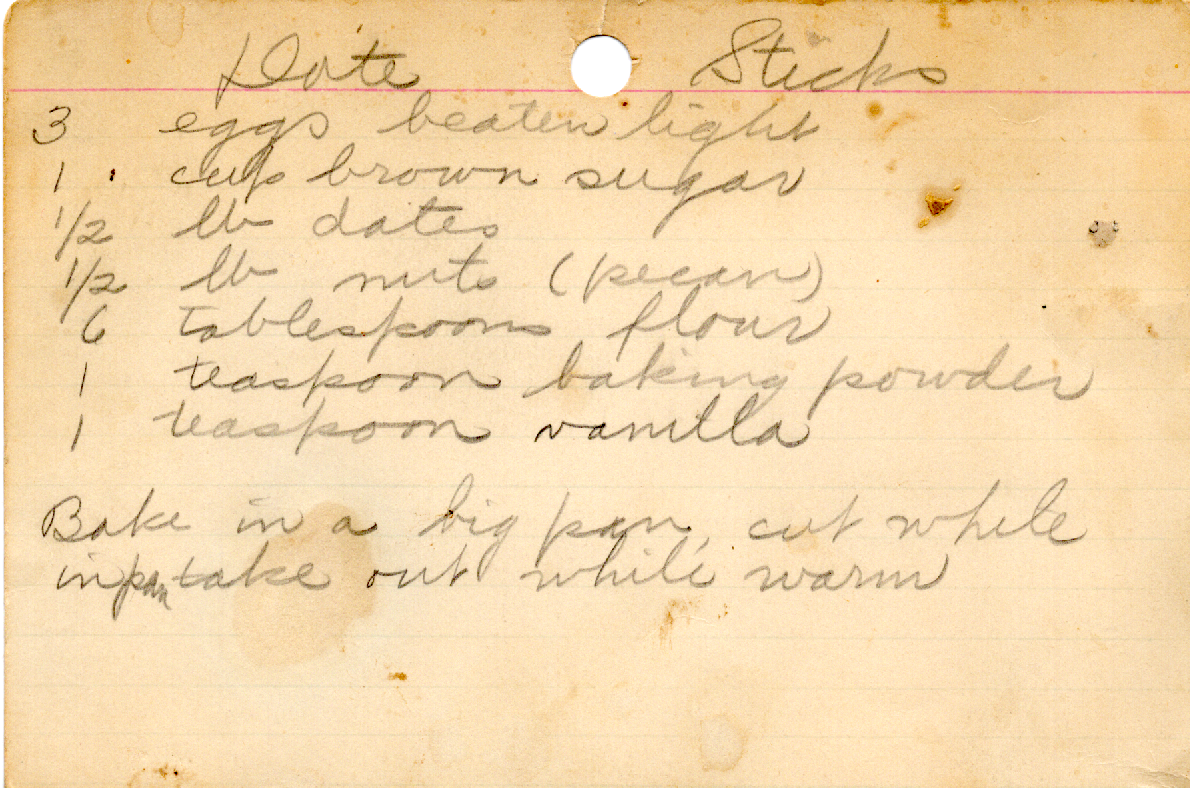 Date Sticks
3 eggs beaten light
1 cup brown sugar
1/2 lb dates
1/2 lb nuts (pecan)
6 tablespoons flour
1 teaspoon baking powder
1 teaspoon vanilla
Bake in a big pan, cut while
in pan take out while warm